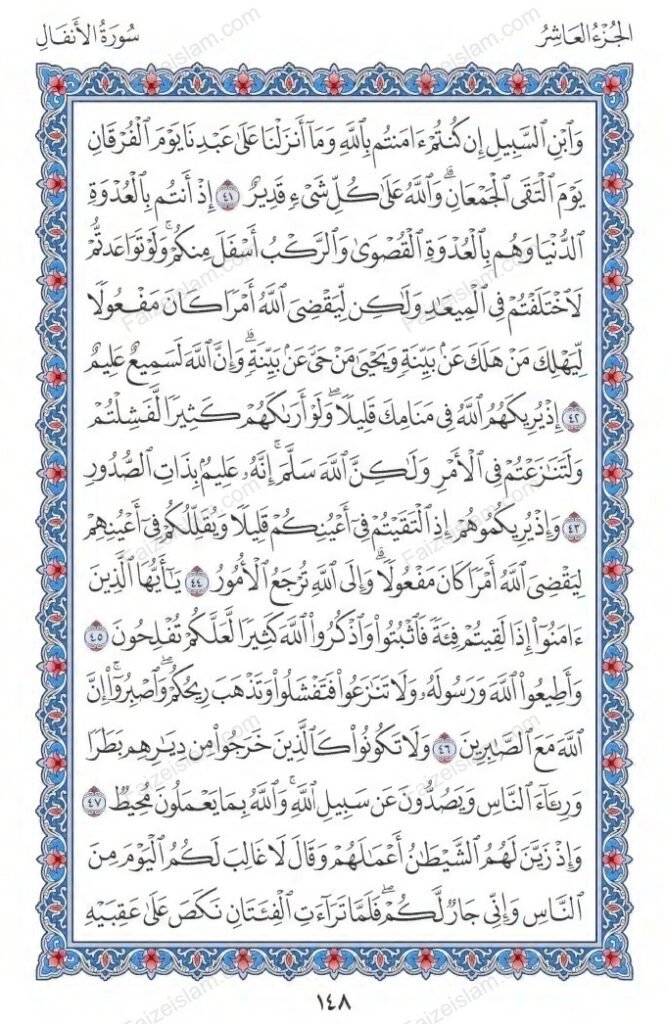 الجُزْءُ العَاشِرُ
سُورَةُ الأَنفَالِ
وَٱبْنِ ٱلسَّبِيلِ إِن كُنتُمْ ءَامَنتُم بِٱللَّهِ وَمَآ أَنزَلْنَا عَلَىٰ عَبْدِنَا يَوْمَ ٱلْفُرْقَانِ
يَوْمَ ٱلْتَقَى ٱلْجَمْعَانِۗ وَٱللَّهُ عَلَىٰ كُلِّ شَىْءٍ قَدِيرٌ ٤١ إِذْ أَنتُم بِٱلْعُدْوَةِ
ٱلدُّنْيَا وَهُم بِٱلْعُدْوَةِ ٱلْقُصْوَىٰ وَٱلرَّكْبُ أَسْفَلَ مِنكُمْۚ وَلَوْ تَوَاعَدتُّمْ
لَٱخْتَلَفْتُمْ فِى ٱلْمِيعَـٰدِ وَلَـٰكِن لِّيَقْضِىَ ٱللَّهُ أَمْرًا كَانَ مَفْعُولًا
لِّيَهْلِكَ مَنْ هَلَكَ عَنۢ بَيِّنَةٍ وَيَحْيَىٰ مَنْ حَىَّ عَنۢ بَيِّنَةٍۗ وَإِنَّ ٱللَّهَ لَسَمِيعٌ عَلِيمٌ
٤٢ إِذْ يُرِيكَهُمُ ٱللَّهُ فِى مَنَامِكَ قَلِيلًاۖ وَلَوْ أَرَىٰكَهُمْ كَثِيرًا لَّفَشِلْتُمْ
وَلَتَنَـٰزَعْتُمْ فِى ٱلْأَمْرِ وَلَـٰكِنَّ ٱللَّهَ سَلَّمَۗ إِنَّهُۥ عَلِيمٌۢ بِذَاتِ ٱلصُّدُورِ
٤٣ وَإِذْ يُرِيكُمُوهُمْ إِذِ ٱلْتَقَيْتُمْ فِىٓ أَعْيُنِكُمْ قَلِيلًا وَيُقَلِّلُكُمْ فِىٓ أَعْيُنِهِمْ
لِيَقْضِىَ ٱللَّهُ أَمْرًا كَانَ مَفْعُولًاۗ وَإِلَى ٱللَّهِ تُرْجَعُ ٱلْأُمُورُ ٤٤ يَـٰٓأَيُّهَا ٱلَّذِينَ
ءَامَنُوٓا۟ إِذَا لَقِيتُمْ فِئَةً فَٱثْبُتُوا۟ وَٱذْكُرُوا۟ ٱللَّهَ كَثِيرًا لَّعَلَّكُمْ تُفْلِحُونَ ٤٥
وَأَطِيعُوا۟ ٱللَّهَ وَرَسُولَهُۥ وَلَا تَنَـٰزَعُوا۟ فَتَفْشَلُوا۟ وَتَذْهَبَ رِيحُكُمْۖ وَٱصْبِرُوٓا۟ۚ إِنَّ
ٱللَّهَ مَعَ ٱلصَّـٰبِرِينَ ٤٦ وَلَا تَكُونُوا۟ كَٱلَّذِينَ خَرَجُوا۟ مِن دِيَـٰرِهِم بَطَرًا
وَرِئَآءَ ٱلنَّاسِ وَيَصُدُّونَ عَن سَبِيلِ ٱللَّهِۚ وَٱللَّهُ بِمَا يَعْمَلُونَ مُحِيطٌ ٤٧
وَإِذْ زَيَّنَ لَهُمُ ٱلشَّيْطَـٰنُ أَعْمَـٰلَهُمْ وَقَالَ لَا غَالِبَ لَكُمُ ٱلْيَوْمَ مِنَ
ٱلنَّاسِ وَإِنِّى جَارٌ لَّكُمْۖ فَلَمَّا تَرَآءَتِ ٱلْفِئَتَانِ نَكَصَ عَلَىٰ عَقِبَيْهِ
١٤٨
Faizeislam.com